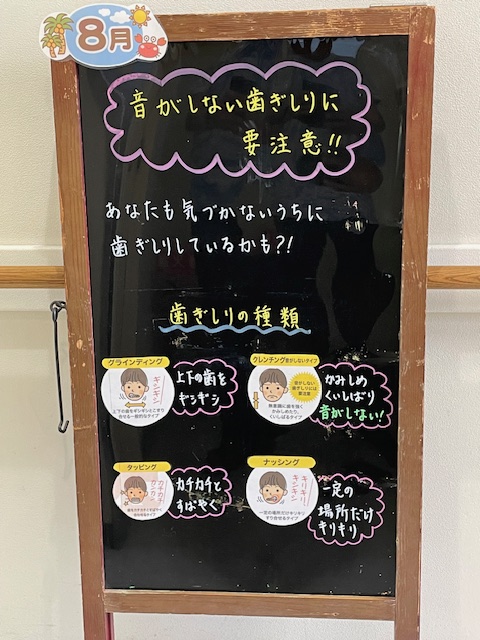 8月
音がしない歯ぎしりに
要注意!!
あなたも気づかないうちに
歯ぎしりしているかも?!
歯ぎしりの種類
グラインディング
ギシギシ
上下の歯をギシギシとこすり
合せる一般的なタイプ
上下の歯を
ギシギシ
クレンチング音がしないタイプ
音がしない
歯ぎしりには
要注意
無意識に歯を強く
かみしめたり、
くいしばるタイプ
かみしめ
くいしばり
音がしない!
タッピング
カチカチ
カチカチ
歯をカチカチとすばやく
合わせるタイプ
カチカチと
すばやく
ナッシング
キリキリ!
ギシギシ
一定の場所だけキリキリ
すり合せるタイプ
一定の
場所だけ
キリキリ